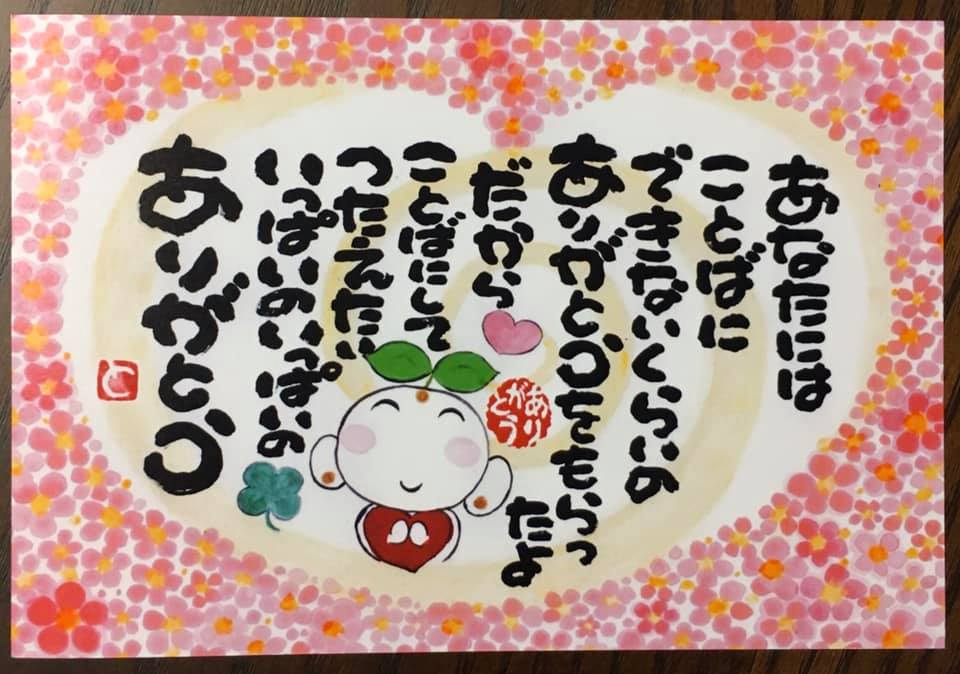 あなたには
ことばに
できないくらいの
ありがとうをもらっ
たよ
だから
ことばにして
つたえたい
いっぱいのいっぱいの
ありがとう
あり
がとう
と